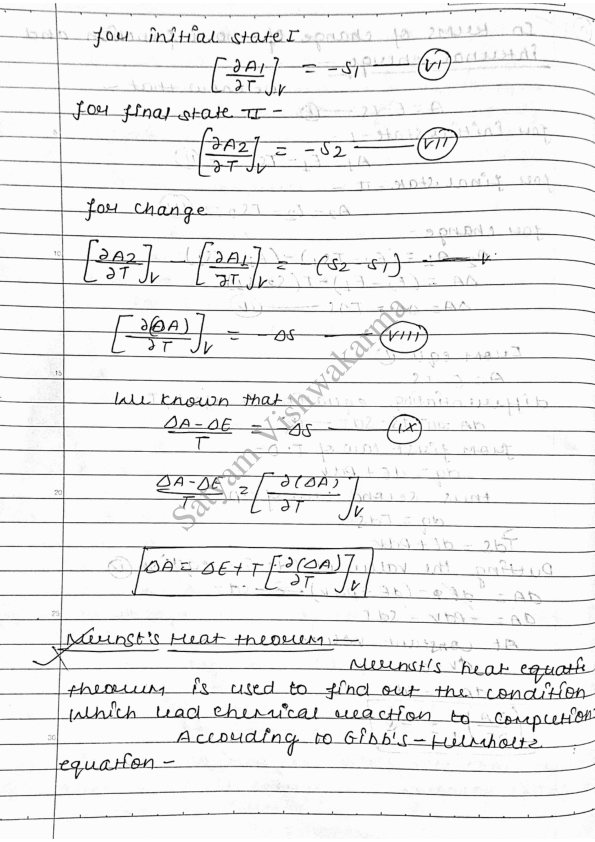 for initial state I
[∂A1/∂T]v = -S1 —— (vi)
for final state II -
[∂A2/∂T]v = -S2 —— (vii)
for change
[∂A2/∂T]v - [∂A1/∂T]v = -(S2 - S1)
[∂(ΔA)/∂T]v = -ΔS —— (viii)
We known that
ΔA-ΔE/T = -ΔS —— (ix)
ΔA-ΔE/T = [∂(ΔA)/∂T]v
ΔA = ΔE + T [∂(ΔA)/∂T]v
Nernst's Heat theorem —
Nernst's heat equatn
theorem is used to find out the condition
which lead chemical reaction to completion.
According to Gibb's - Helmholtz
equation -
Satyam Vishwakarma